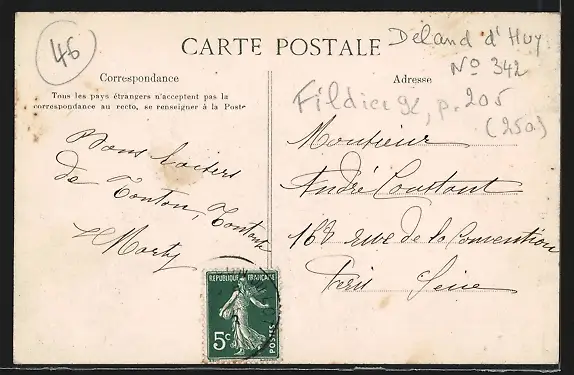 46
CARTE POSTALE
Deland d'Huy
Nº 342
Correspondance
Adresse
Tous les pays étrangers n'acceptent pas la
correspondance au recto, se renseigner à la Poste
Fildier 92, p. 205
(250)
Bons baisers
de Tonton, Tontente
Marty
Monsieur
André Coustant
168 rue de la Convention
Paris Seine
REPUBLIQUE FRANÇAISE
5c
POSTES